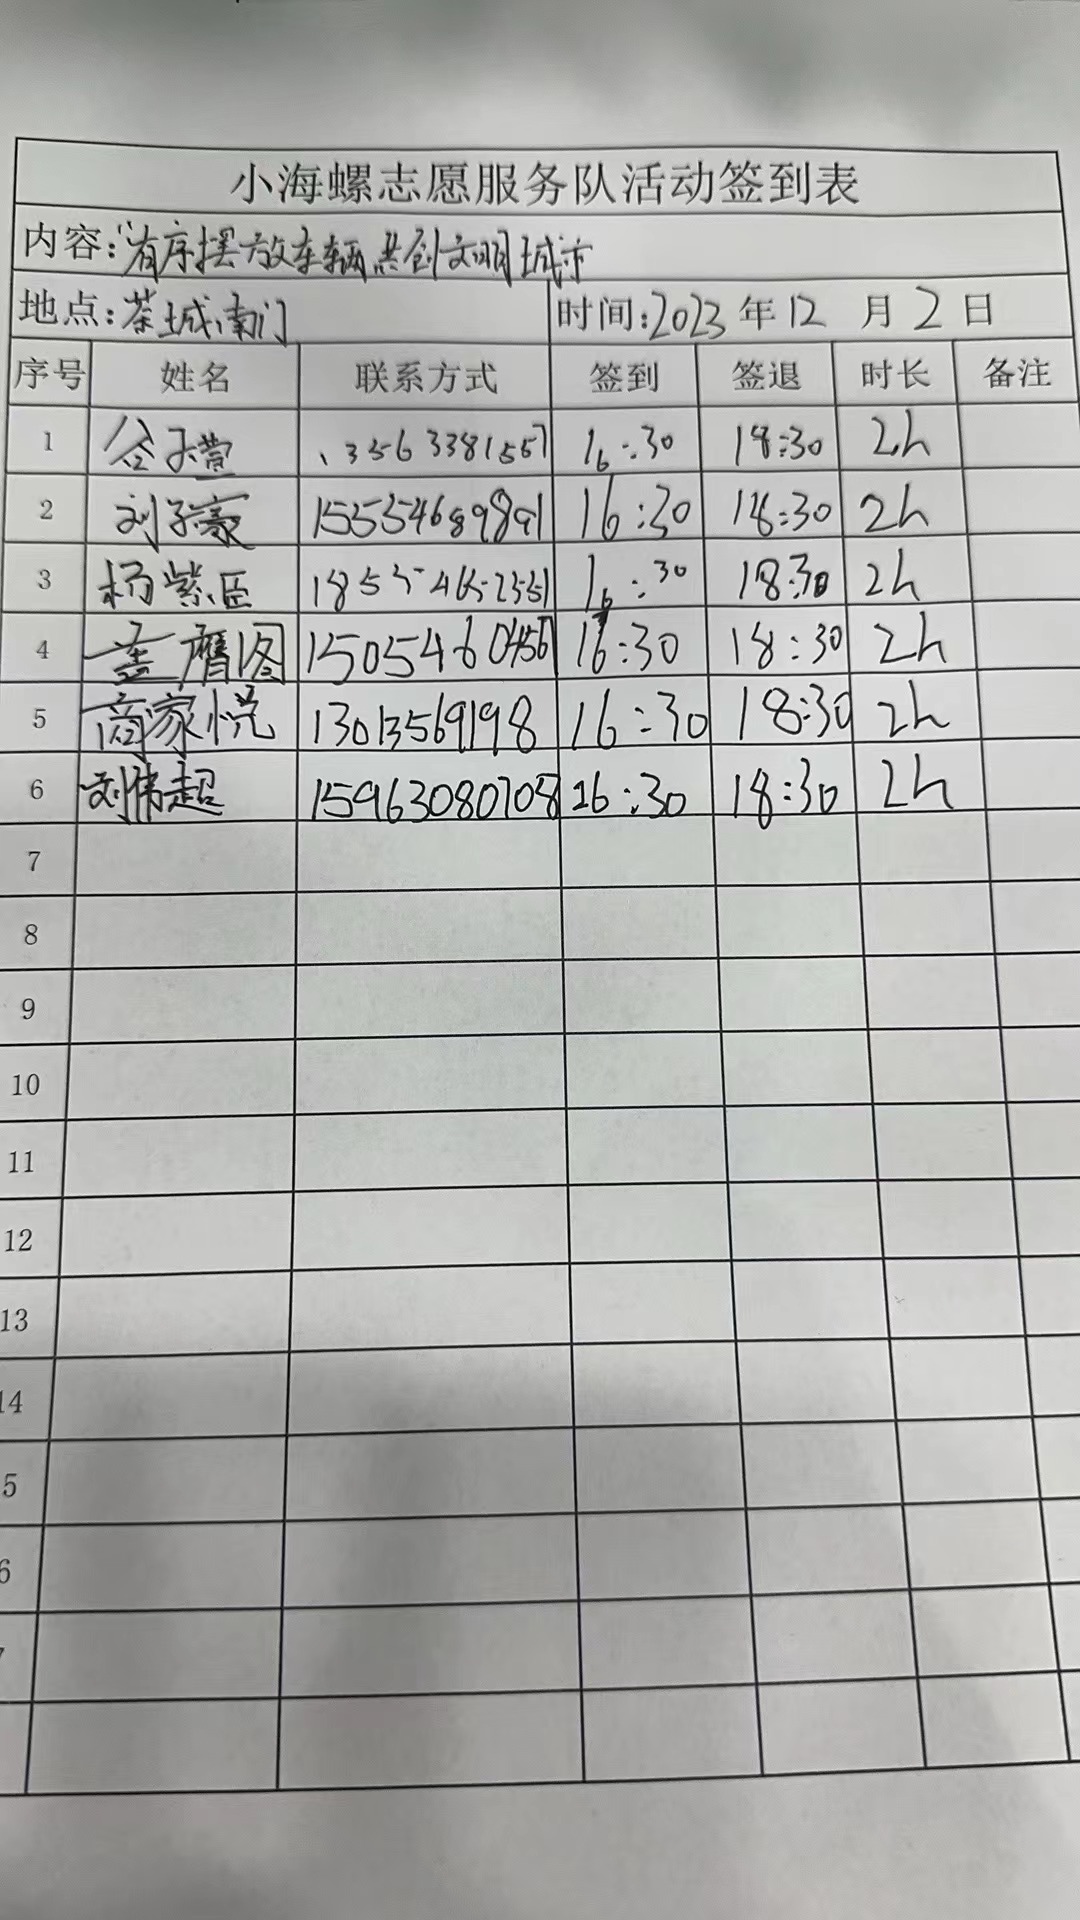 小海螺志愿服务队活动签到表
内容:“有序摆放车辆共创文明城市
地点:茶城南门 时间:2023年12月2日
序号 姓名 联系方式 签到 签退 时长 备注
1 谷子萱 13563381557 16:30 18:30 2h
2 刘子豪 15554689891 16:30 18:30 2h
3 杨紫臣 16:30 18:30 2h
4 16:30 18:30 2h
5 商家悦 13013569198 16:30 18:30 2h
6 刘伟超 15963080708 16:30 18:30 2h
7
8
9
10
11
12
13
14
5
6